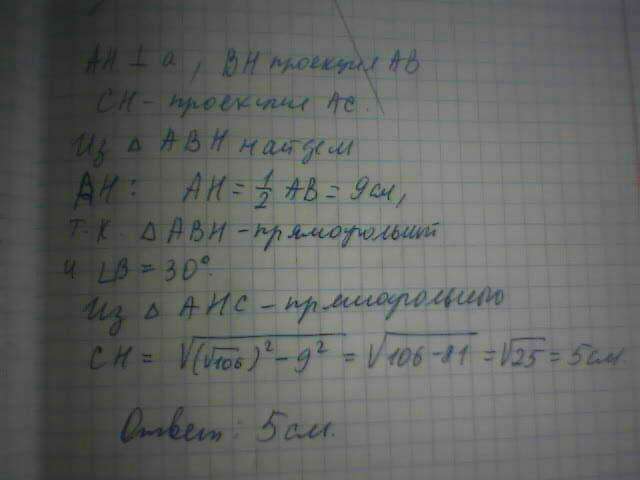 AH ⊥ a, BH проекция AB
CH - проекция AC.
Из △ ABH найдем
AH: AH = 1/2 AB = 9 см,
т.к. △ ABH - прямоугольный
и ∠B = 30°.
Из △ AHC - прямоугольного
CH = √((√106)² - 9²) = √(106 - 81) = √25 = 5 см.
Ответ: 5 см.